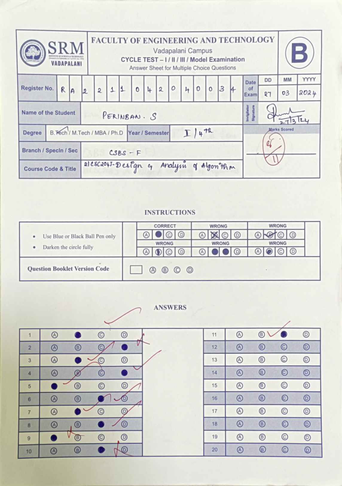 SRM
VADAPALANI
FACULTY OF ENGINEERING AND TECHNOLOGY
Vadapalani Campus
CYCLE TEST – I / II / III / Model Examination
Answer Sheet for Multiple Choice Questions
B
Register No. R A 2 2 1 1 0 4 2 0 4 0 0 3 4
Date of Exam DD MM YYYY
27 03 2024
Name of the Student PERINBAN. S
Invigilator Signature
Degree B.Tech / M.Tech / MBA / Ph.D Year / Semester II / 4th
Marks Scored
Branch / Specln / Sec CSBS - F
11
Course Code & Title Design & Analysis of Algorithm
INSTRUCTIONS
• Use Blue or Black Ball Pen only
• Darken the circle fully
CORRECT WRONG WRONG
WRONG WRONG WRONG
Question Booklet Version Code A B C D
ANSWERS
1 A C D 11 A B D
2 A B C 12 A B C D
3 A C D 13 A B C D
4 A B C 14 A B C D
5 B C D 15 A B C D
6 A B D 16 A B C D
7 A C D 17 A B C D
8 A B D 18 A B C D
9 B C D 19 A B C D
10 A B D 20 A B C D